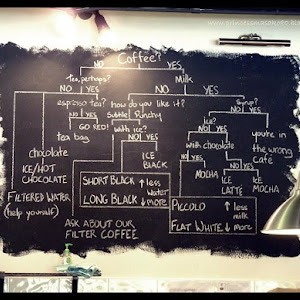 Coffee?
NO YES
Tea, perhaps? Milk
NO YES NO YES
espresso tea? how do you like it? Syrup?
NO YES Subtle Punchy Ice? NO YES
GO RED! with ice? NO YES you're in
tea bag NO YES with chocolate the wrong
chocolate ICE NO YES NO YES café
ICE/HOT BLACK MOCHA ICE ICE
CHOCOLATE LATTE MOCHA
FILTERED WATER SHORT BLACK ↑ less
(help yourself) water
LONG BLACK ↓ more
PICCOLO ↑ less
milk
FLAT WHITE ↓ more
ASK ABOUT OUR
FILTER COFFEE